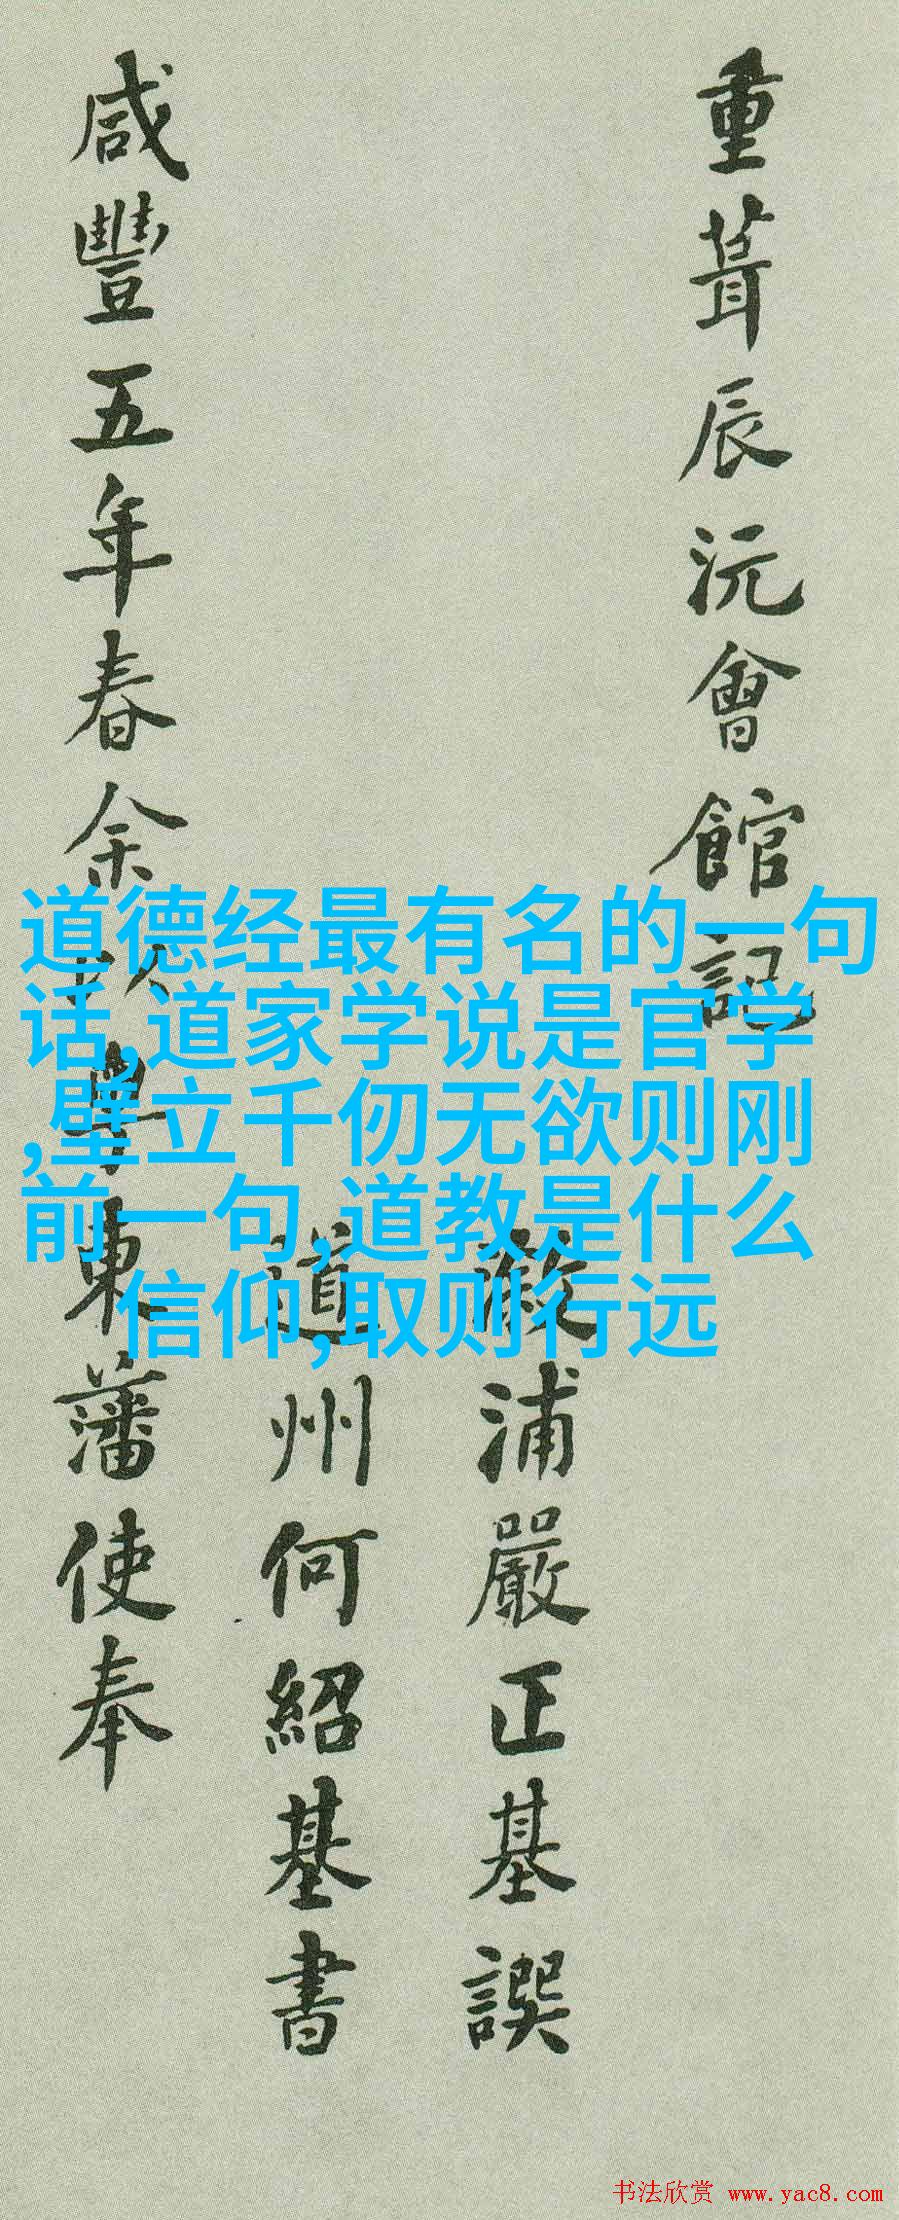 重葺辰沅會館記
漵浦嚴正基譔
道州何紹基書
咸豐五年春余以粤東藩使奉
道德经最有名的一句
话,道家学说是官学
,壁立千仞无欲则刚
前一句,道教是什么
信仰,取则行远
书法欣赏 www.yac8.com